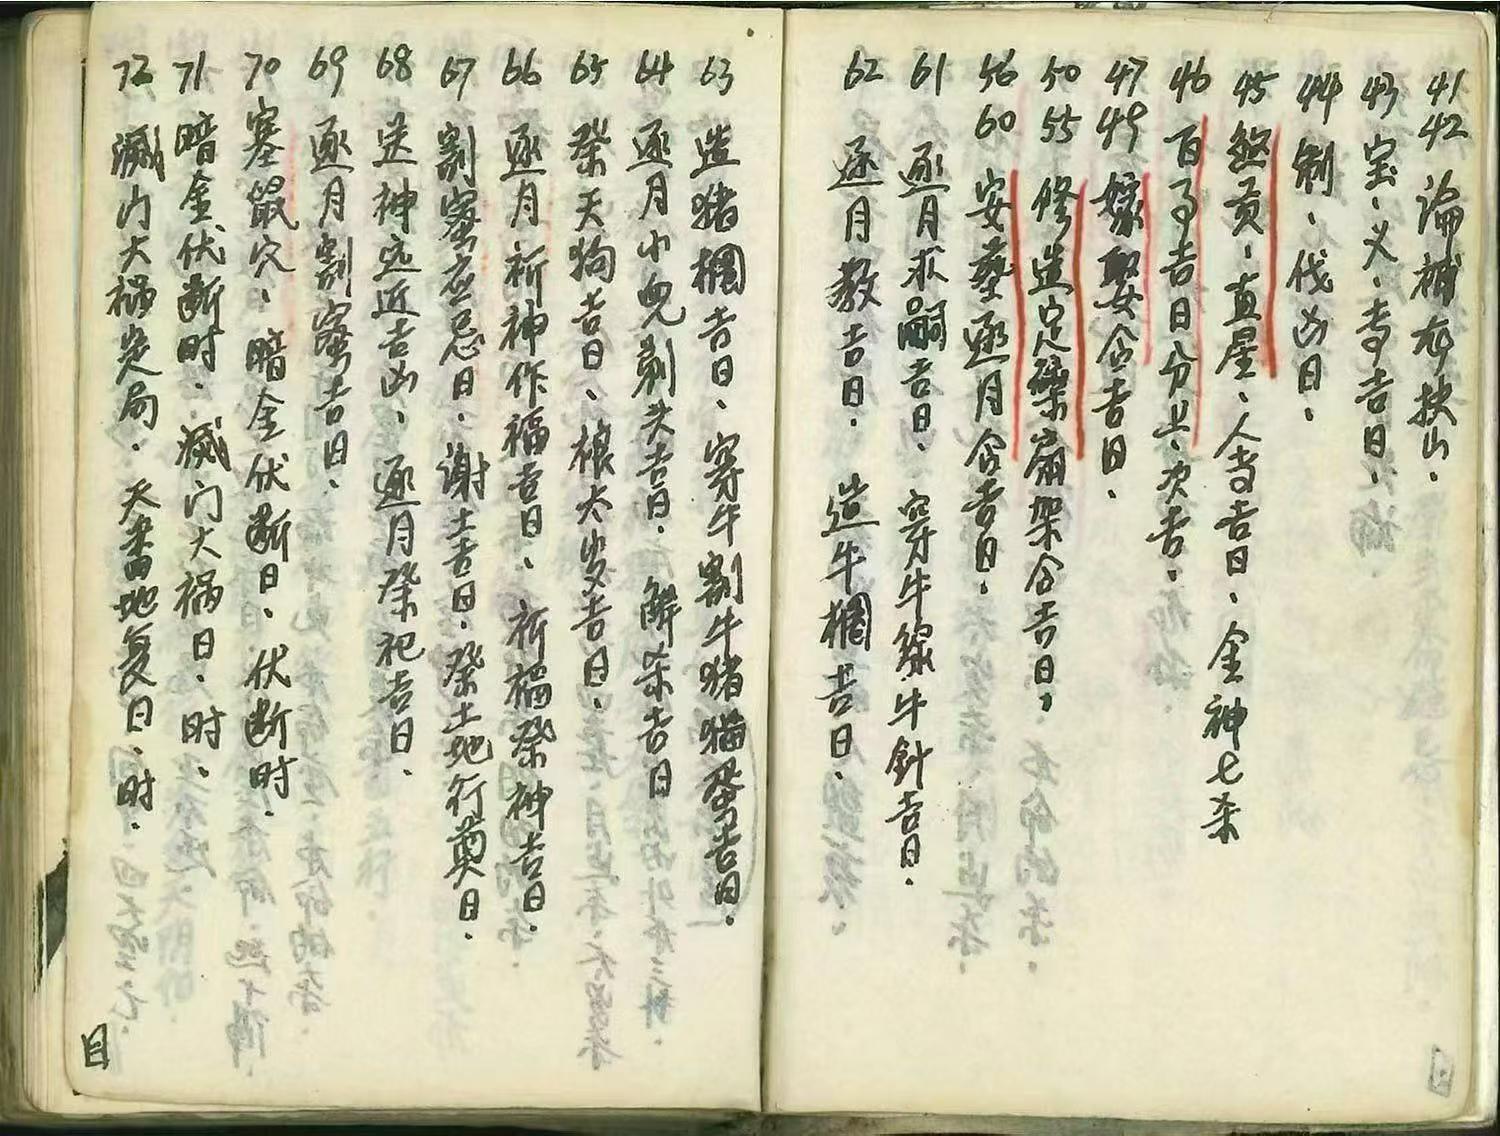 41 42 論補龙扶山.
43 宝、义、专吉日.
44 制、伐凶日.
45 煞贡、直星、人专吉日、金神七杀
46 百事吉日分上、次吉.
47 49 嫁娶合吉日、
50 55 修造定磉扇架合吉日,
56 60 安葬逐月合吉日.
61 逐月求嗣吉日. 穿牛繂牛針吉日.
62 逐月教吉日. 造牛欄吉日.
63 造猪欄吉日、穿牛割牛猪猫蛋吉日.
64 逐月小兒剃头吉日. 解杀吉日
65 祭天狗吉日、禳太岁吉日.
66 逐月祈神作福吉日、祈福祭神吉日.
67 割蜜应忌日. 謝土吉日. 祭土地行奠日.
68 送神远近吉凶、逐月祭祀吉日.
69 逐月割蜜吉日.
70 塞鼠穴、暗金伏断日. 伏断时.
71 暗金伏断时. 滅门大祸日. 时.
72 滅门大禍定局. 天番地复日、时.
目